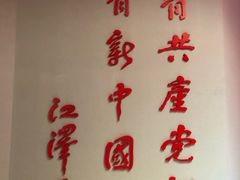 有共產党
有新中國
江澤